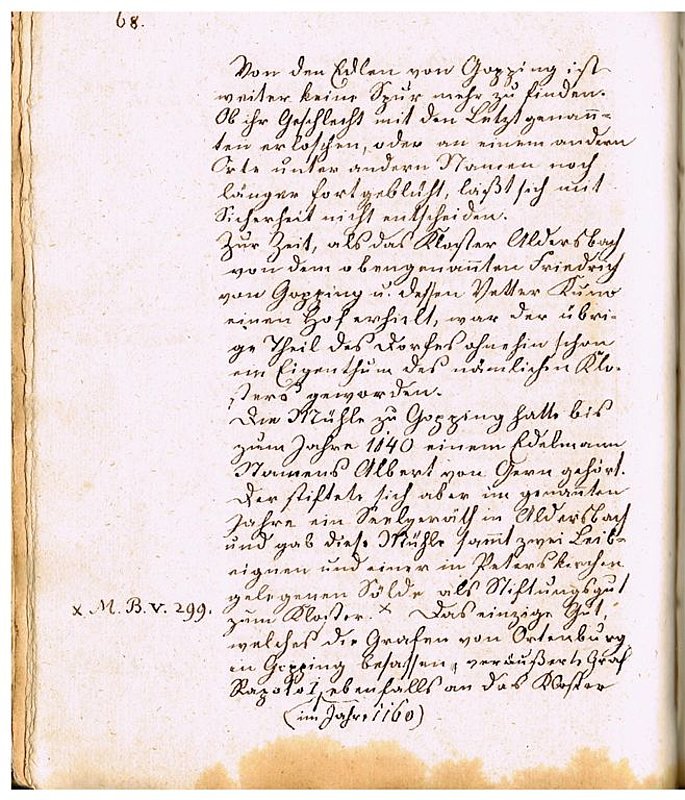 68.
Von den Edlen von Gopping ist
weiter keine Spur mehr zu finden.
Ob ihr Geschlecht mit den Letztgenan̄-
ten erloschen, oder an einem andern
Orte unter andern Namen noch
länger fortgeblüht, läßt sich mit
Sicherheit nicht entscheiden.
Zur Zeit, als das Kloster Aldersbach
von dem obengenan̄ten Friedrich
von Gopping u. dessen Vetter Kuno
einen Hof erhielt, war der übri-
ge Theil des Dorfes ohnehin schon
ein Eigenthum des nämlichen Klo-
sters geworden.
Die Mühle zu Gopping hatte bis
zum Jahre 1140 einem Edelmann
Namens Albert von Gern gehört.
Der stiftete sich aber im genan̄ten
Jahre ein Seelgeräth in Aldersbach
und gab diese Mühle sammt zwei Leib-
eignen und einer in Peterskirchen
gelegenen Sölde als Stiftungsgut
zum Kloster. x Das einzige Gut,
x M. B. V. 299.
welches die Grafen von Ortenburg
in Gopping besassen, veräußerte Graf
Rapoto I. ebenfalls an das Kloster
(im Jahre 1160)